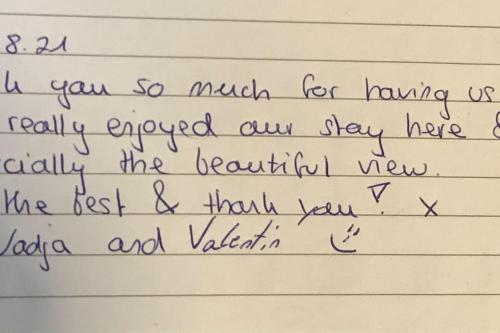 8.21
k you so much for having us
really enjoyed our stay here &
cially the beautiful view.
the best & thank you! x
Nadja and Valentin